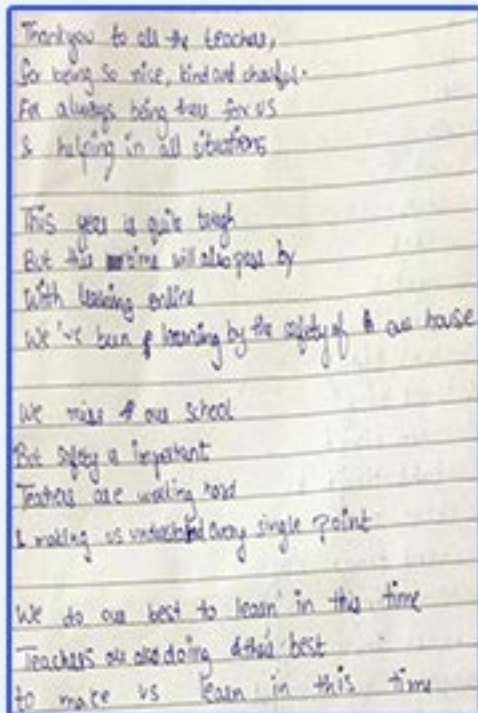 Thankyou to all the teachers,
for being so nice, kind and cheerful.
For always being there for us
& helping in all situations
This year is quite tough
But this time will also pass by
With learning online
We've been learning by the safety of our house
We miss our school
But safety is important
Teachers are working hard
& making us understand every single point
We do our best to learn in this time
Teachers are also doing their best
to make us learn in this time